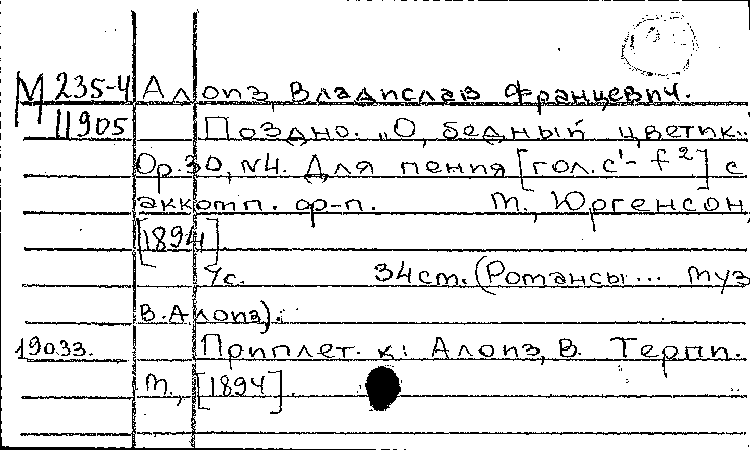 М 235-4 Алоиз, Владислав Францевич.
11905 Поздно. „О, бедный цветик..
Ор.30, N4. Для пения [гол. c¹- f²] с
аккомп. ф-п. М., Юргенсон,
[1894]
7с. 34см. (Романсы... муз
В. Алоиз).
19033. Приплет. к: Алоиз, В. Терпи.
М., [1894]